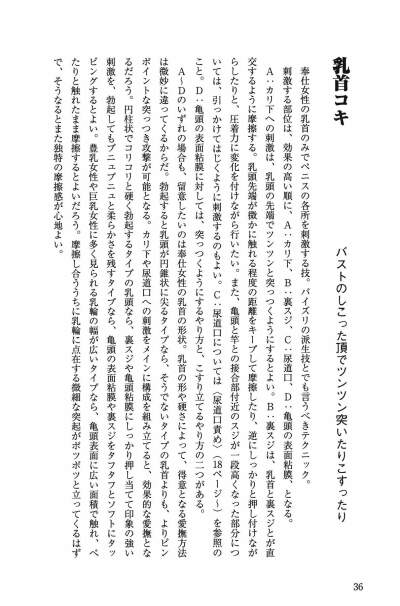 乳首コキ
バストのしこった頂でツンツン突いたりこすったり
奉仕女性の乳首のみでペニスの各所を刺激する技、パイズリの派生技とでも言うべきテクニック。
刺激する部位は、効果の高い順に、A：カリ下、B：裏スジ、C：尿道口、D：亀頭の表面粘膜、となる。
A：カリ下への刺激は、乳頭の先端でツンツンと突っつくようにするとよい。B：裏スジは、乳首と裏スジとが直
交するように摩擦する。乳頭先端が微かに触れる程度の距離をキープして摩擦したり、逆にしっかりと押し付けなが
らしたりと、圧着力に変化を付けながら行いたい。また、亀頭と竿との接合部付近のスジが一段高くなった部分につ
いては、引っかけてはじくように刺激するのもよい。C：尿道口については〈尿道口責め〉（18ページ～）を参照の
こと。D：亀頭の表面粘膜に対しては、突っつくようにするやり方と、こすり立てるやり方の二つがある。
A～Dのいずれの場合も、留意したいのは奉仕女性の乳首の形状。乳首の形や硬さによって、得意となる愛撫方法
は微妙に違ってくるからだ。勃起すると乳頭が円錐状に尖るタイプなら、そうでないタイプの乳首よりも、よりピン
ポイントな突っつき攻撃が可能となる。カリ下や尿道口への刺激をメインに構成を組み立てると、効果的な愛撫とな
るだろう。円柱状でコリコリと硬く勃起するタイプの乳頭なら、裏スジや亀頭粘膜にしっかり押し当てて印象の強い
刺激を、勃起してもプニュプニュと柔らかさを残すタイプなら、亀頭の表面粘膜や裏スジをタフタフとソフトにタッ
ピングするとよい。豊乳女性や巨乳女性に多く見られる乳輪の幅が広いタイプなら、亀頭表面に広い面積で触れ、ペ
たりと触れたまま摩擦するとよいだろう。摩擦し合ううちに乳輪に点在する微細な突起がポツポツと立ってくるはず
で、そうなるとまた独特の摩擦感が心地よい。
36